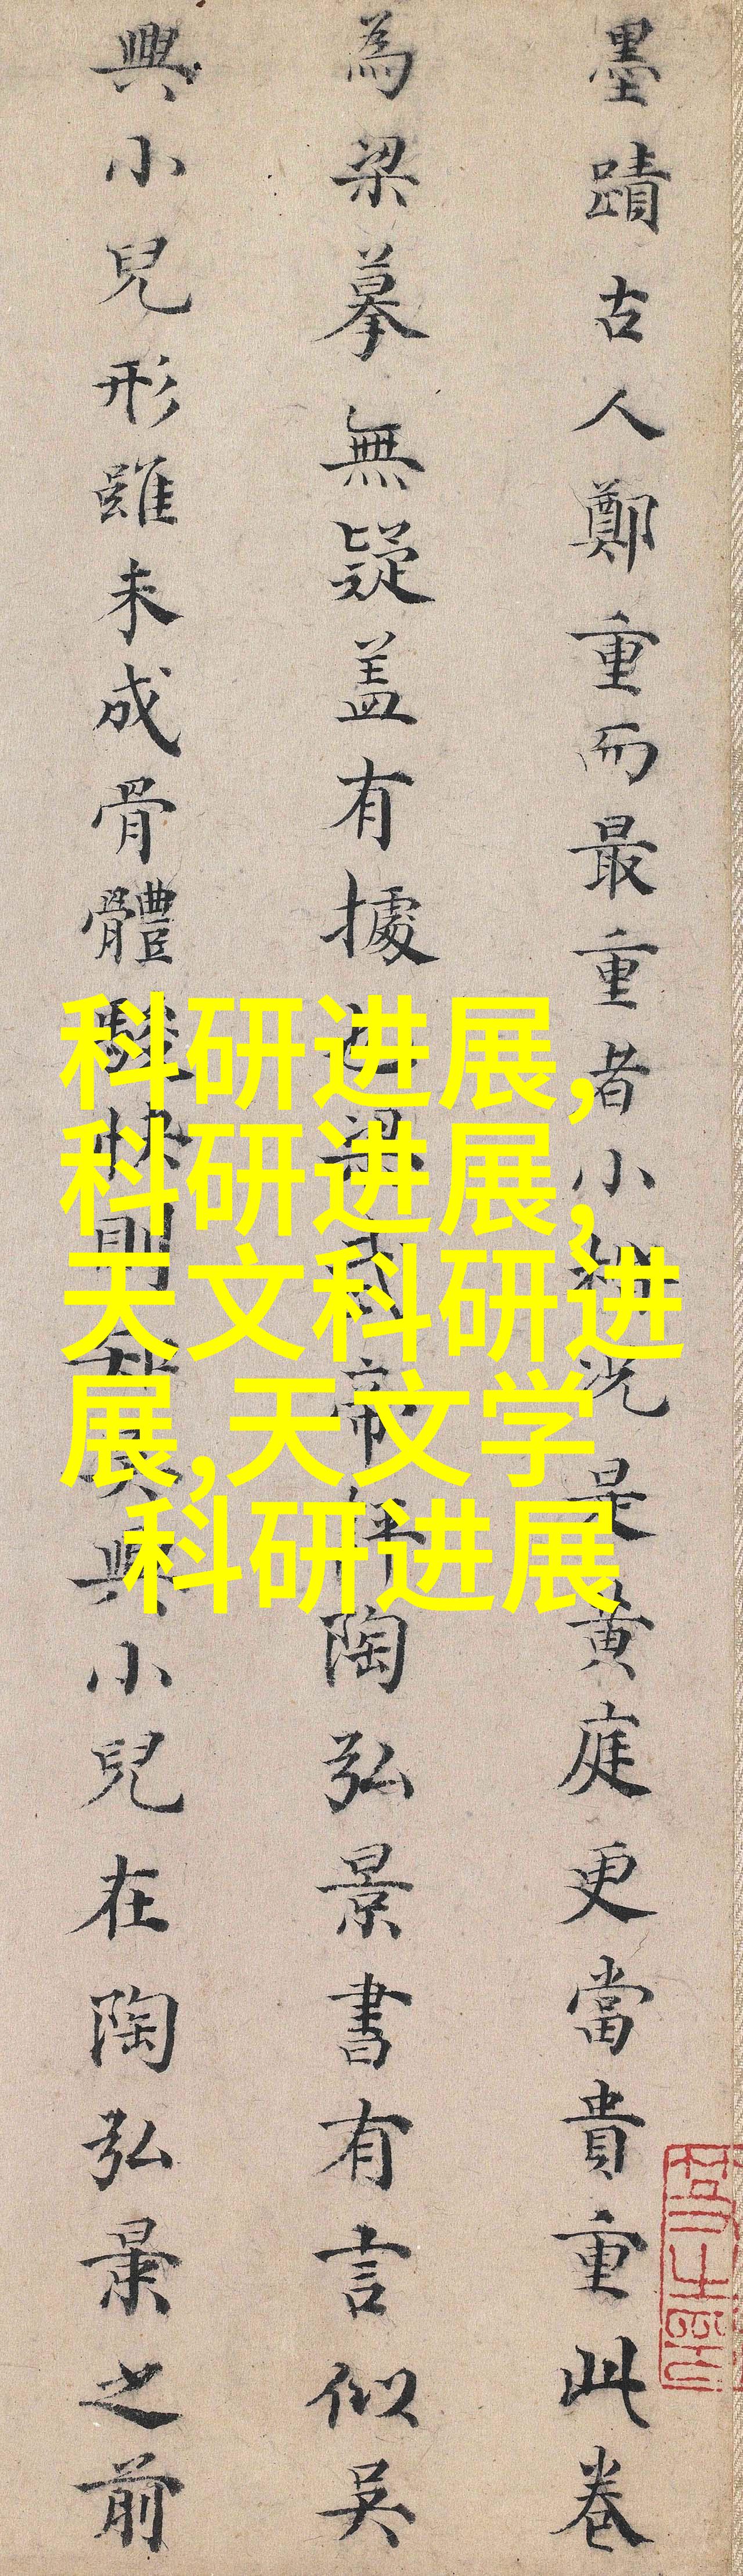 墨蹟古人鄭重而最重者小楷況是黄庭更當貴重此卷
為梁摹無疑蓋有據也梁武帝評陶弘景書有言似吴
興小兒形雖未成骨體駿快則知吴興小兒在陶弘景之前
科研进展,
科研进展,
天文科研进
展,天文学
科研进展